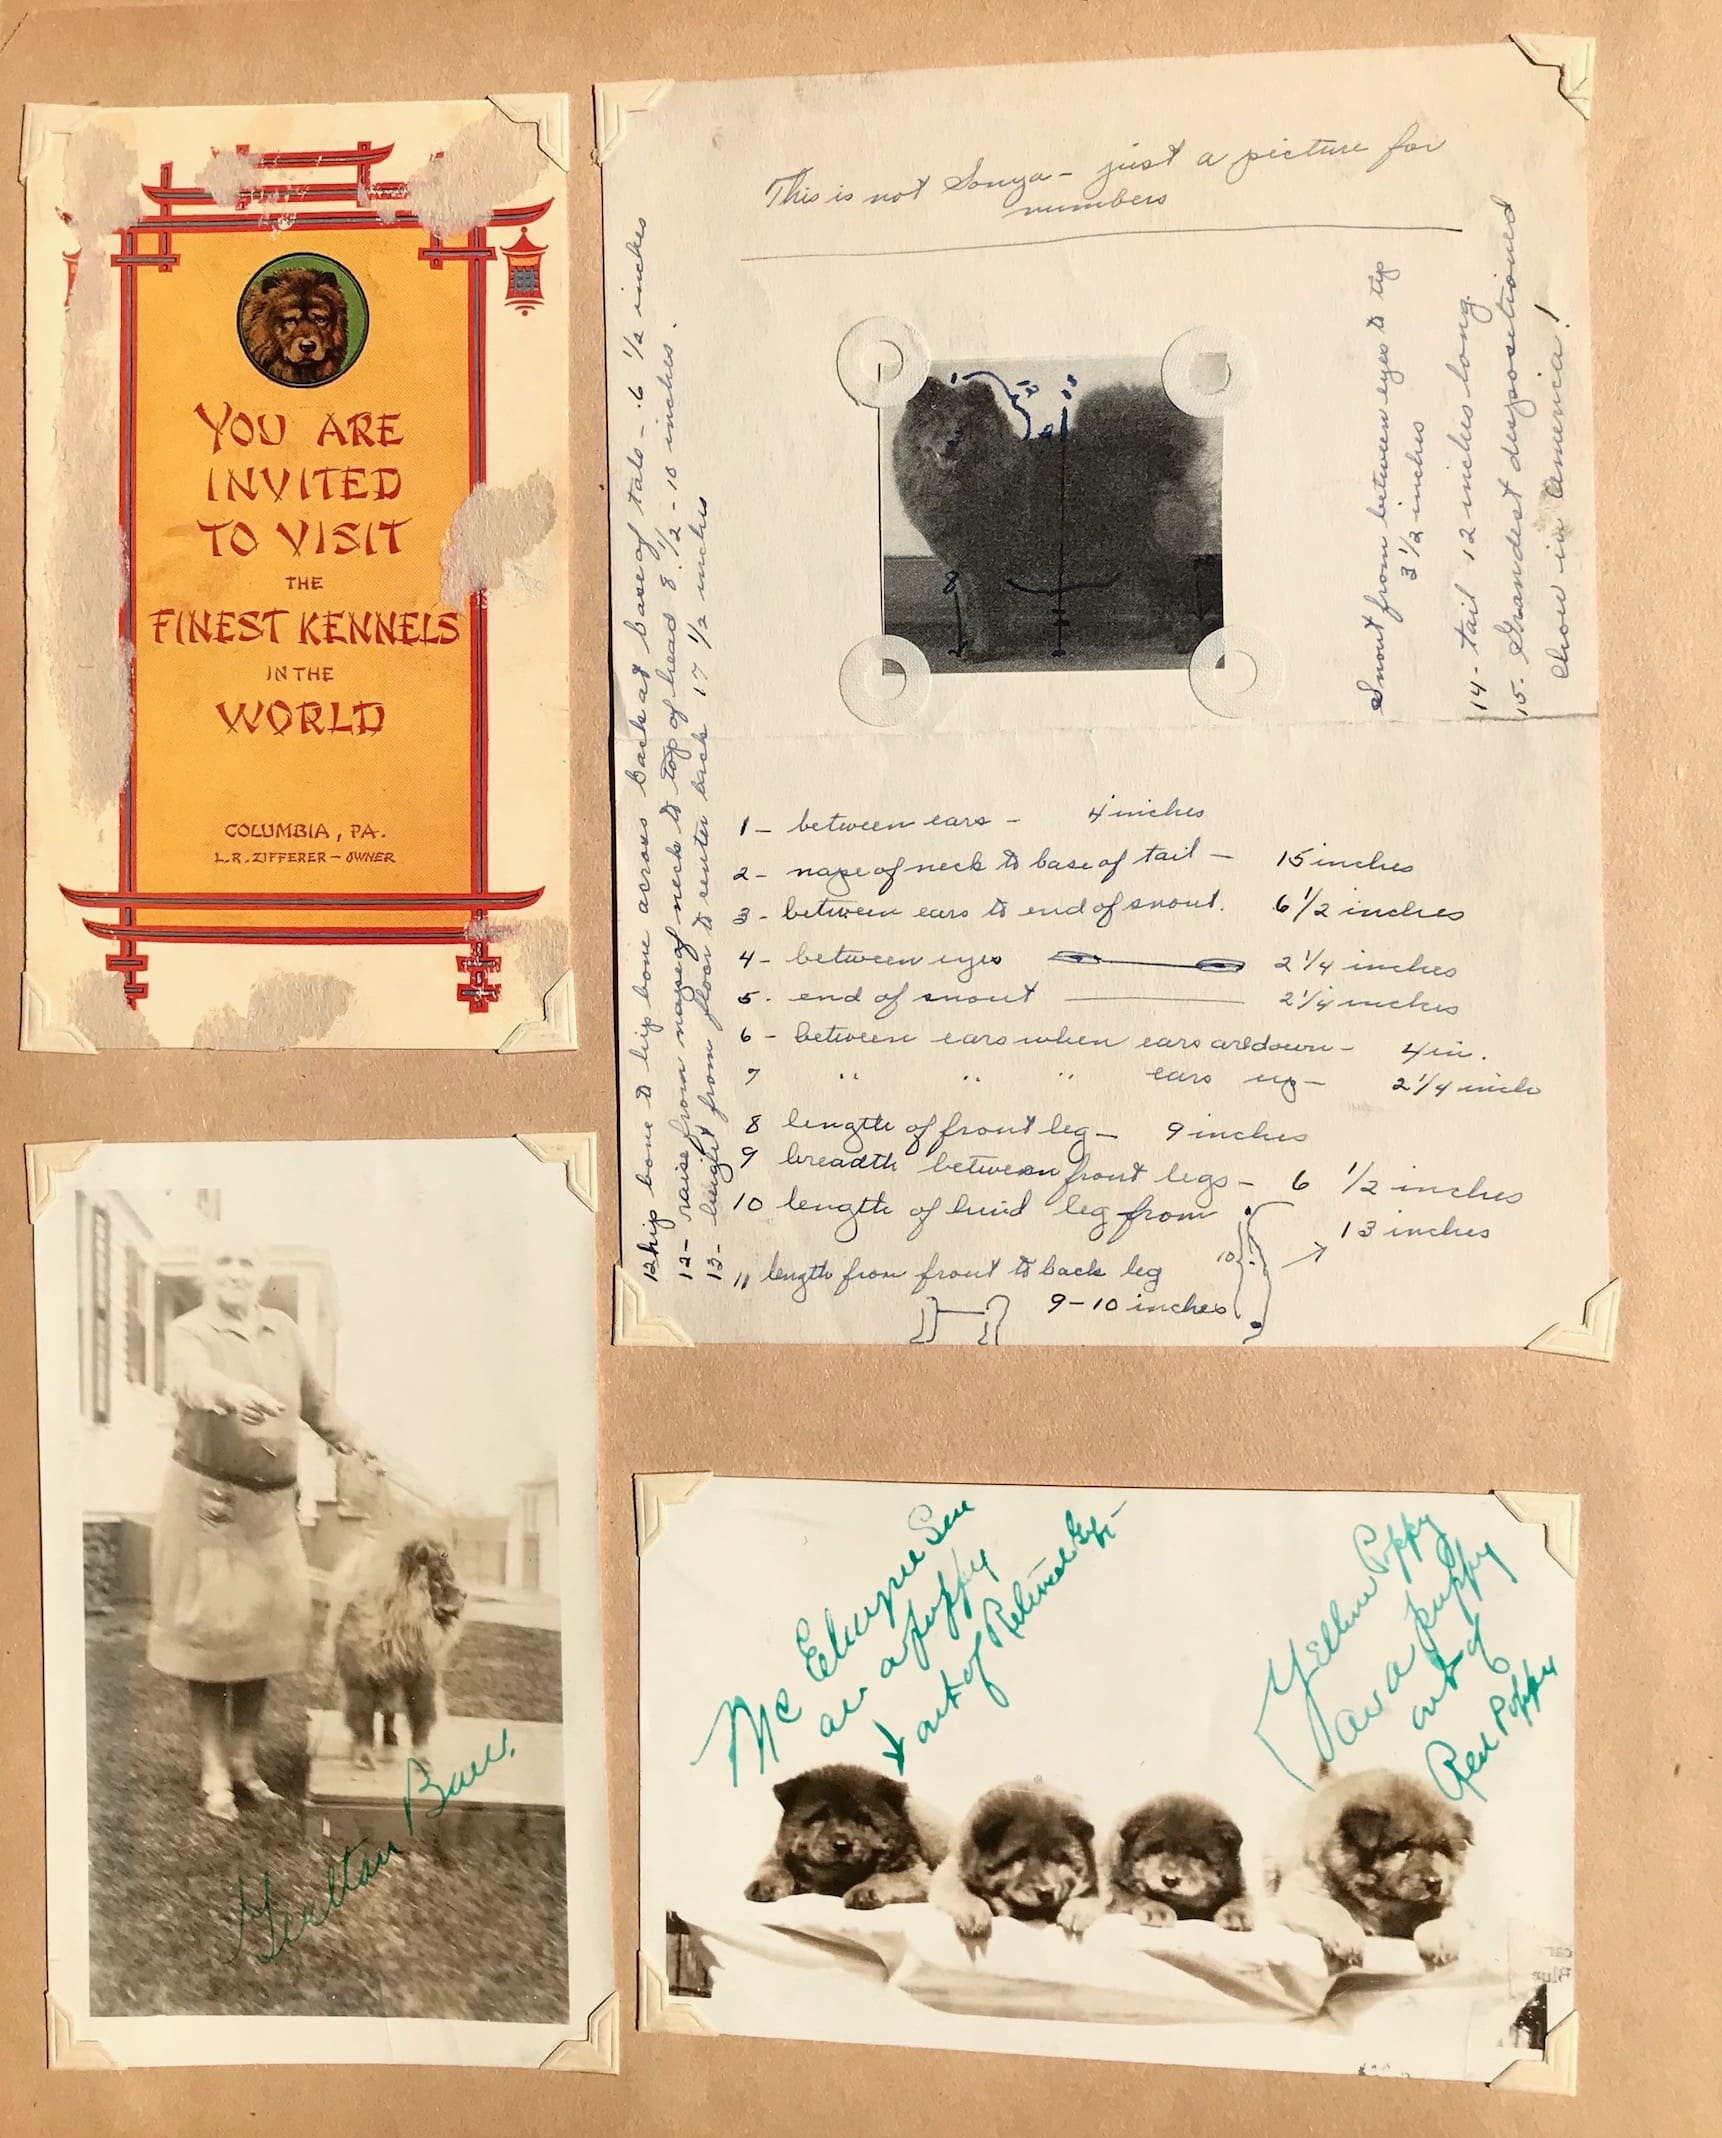 YOU ARE
INVITED
TO VISIT
THE
FINEST KENNELS
IN THE
WORLD
COLUMBIA, PA.
L.R. ZIFFERER – OWNER
This is not Sonya – just a picture for
numbers
Snout from between eyes to tip
3 1/2 inches
14 - tail 12 inches long.
15. Grandest dispositioned
chow in America!
1 – between ears – 4 inches
2 – nape of neck to base of tail – 15 inches
3 - between ears to end of snout. 6 1/2 inches
4 - between eyes 2 1/4 inches
5. end of snout 2 1/4 inches
6 - between ears when ears are down – 4 in.
7 " " " ears up – 2 1/4 inch
8 length of front leg – 9 inches
9 breadth between front legs – 6 1/2 inches
10 length of hind leg from 13 inches
10
11 length from front to back leg
9 – 10 inches
12 hip bone to hip bone across back at base of tale - 6 1/2 inches
12 - raise from nape of neck to top of head 8 1/2 - 10 inches.
13 - height from floor to center back 17 1/2 inches
1
8
Baer.
Mc
as a puppy
out of
Poppy
as a puppy
out of
Red Poppy